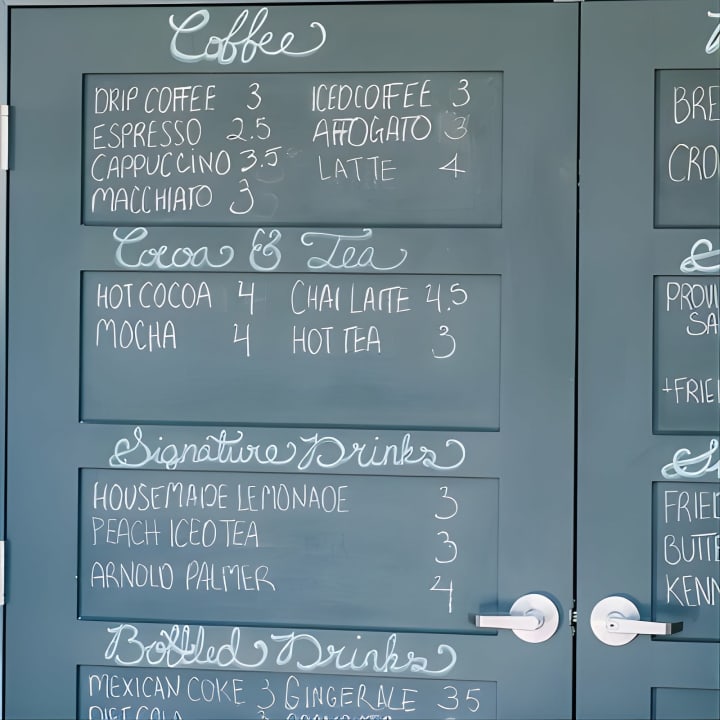 Coffee
DRIP COFFEE 3 ICED COFFEE 3
ESPRESSO 2.5 AFFOGATO 3
CAPPUCCINO 3.5 LATTE 4
MACCHIATO 3
Cocoa & Tea
HOT COCOA 4 CHAI LATTE 4.5
MOCHA 4 HOT TEA 3
Signature Drinks
HOUSEMADE LEMONADE 3
PEACH ICED TEA 3
ARNOLD PALMER 4
Bottled Drinks
MEXICAN COKE 3 GINGERALE 3.5
DIET COLA 3
BRE
CRO
PROVI
SA
+FRIE
FRIED
BUTTE
KENN